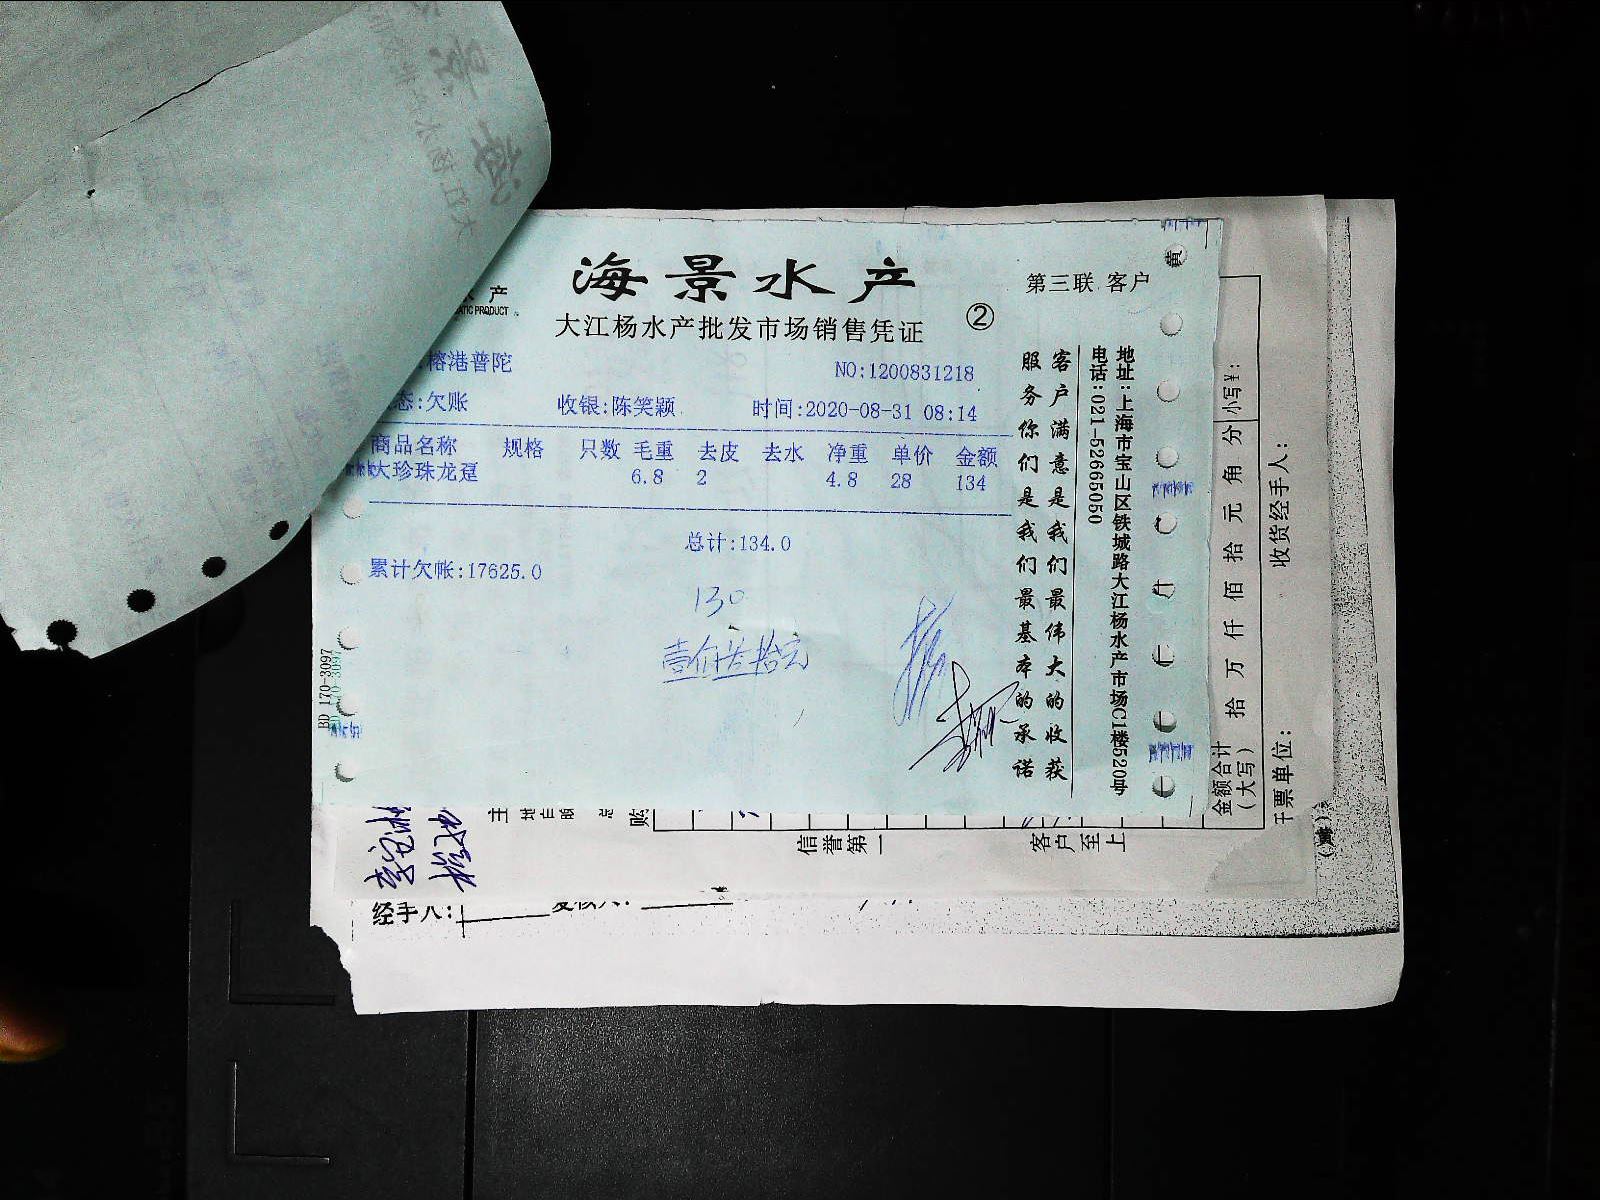 海景水产
水产
ATIC PRODUCT
大江杨水产批发市场销售凭证
②
第三联 客户
黄
榕港普陀
NO:1200831218
态:欠账 收银:陈笑颖 时间:2020-08-31 08:14
商品名称 规格 只数 毛重 去皮 去水 净重 单价 金额
大珍珠龙趸 6.8 2 4.8 28 134
总计:134.0
累计欠帐:17625.0
130
壹佰叁拾元
客户满意是我们最伟大的收获
服务你们是我们最基本的承诺
地址:上海市宝山区铁城路大江杨水产市场C1楼520号
电话:021-52665050
BD 170-3097
金额合计(大写) 拾 万 仟 佰 拾 元 角 分 小写¥:
收货经手人:
开票单位:
信誉第一
客户至上
经手人:
复核人: